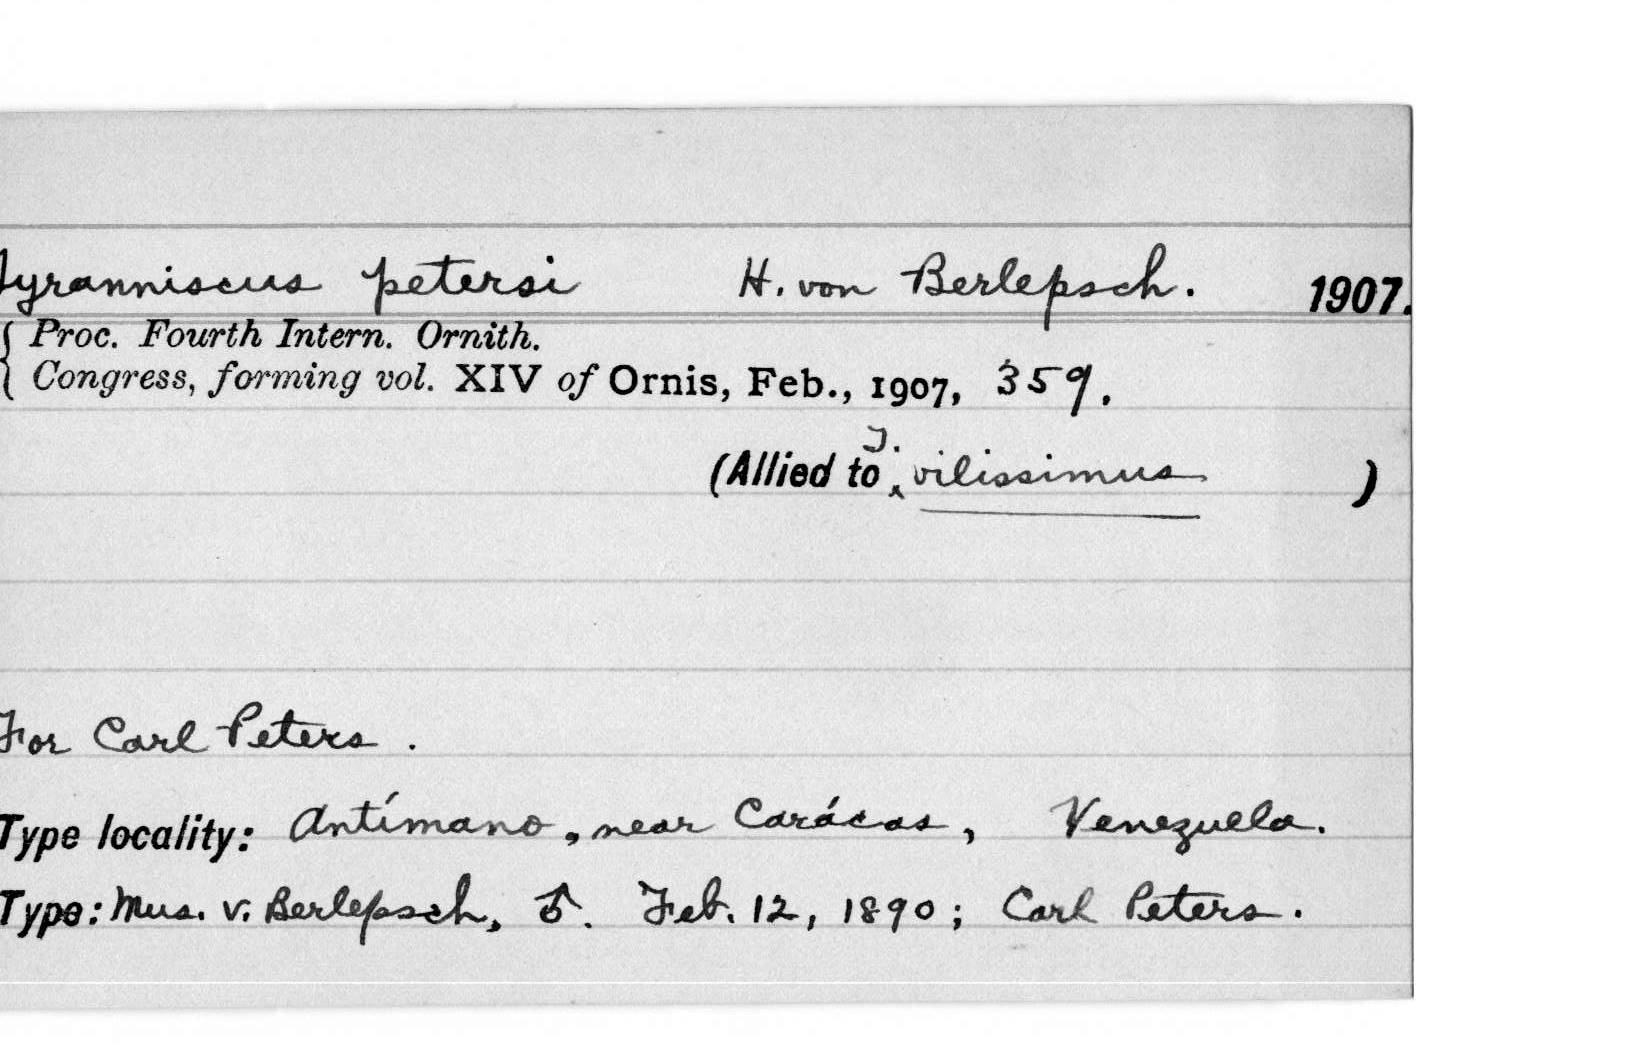 Tyranniscus petersi H. von Berlepsch. 1907.
{ Proc. Fourth Intern. Ornith.
Congress, forming vol. XIV of Ornis, Feb., 1907, 359.
(Allied to T. vilissimus )
For Carl Peters.
Type locality: Antímano, near Carácas, Venezuela.
Type: Mus. v. Berlepsch, ♂. Feb. 12, 1890; Carl Peters.